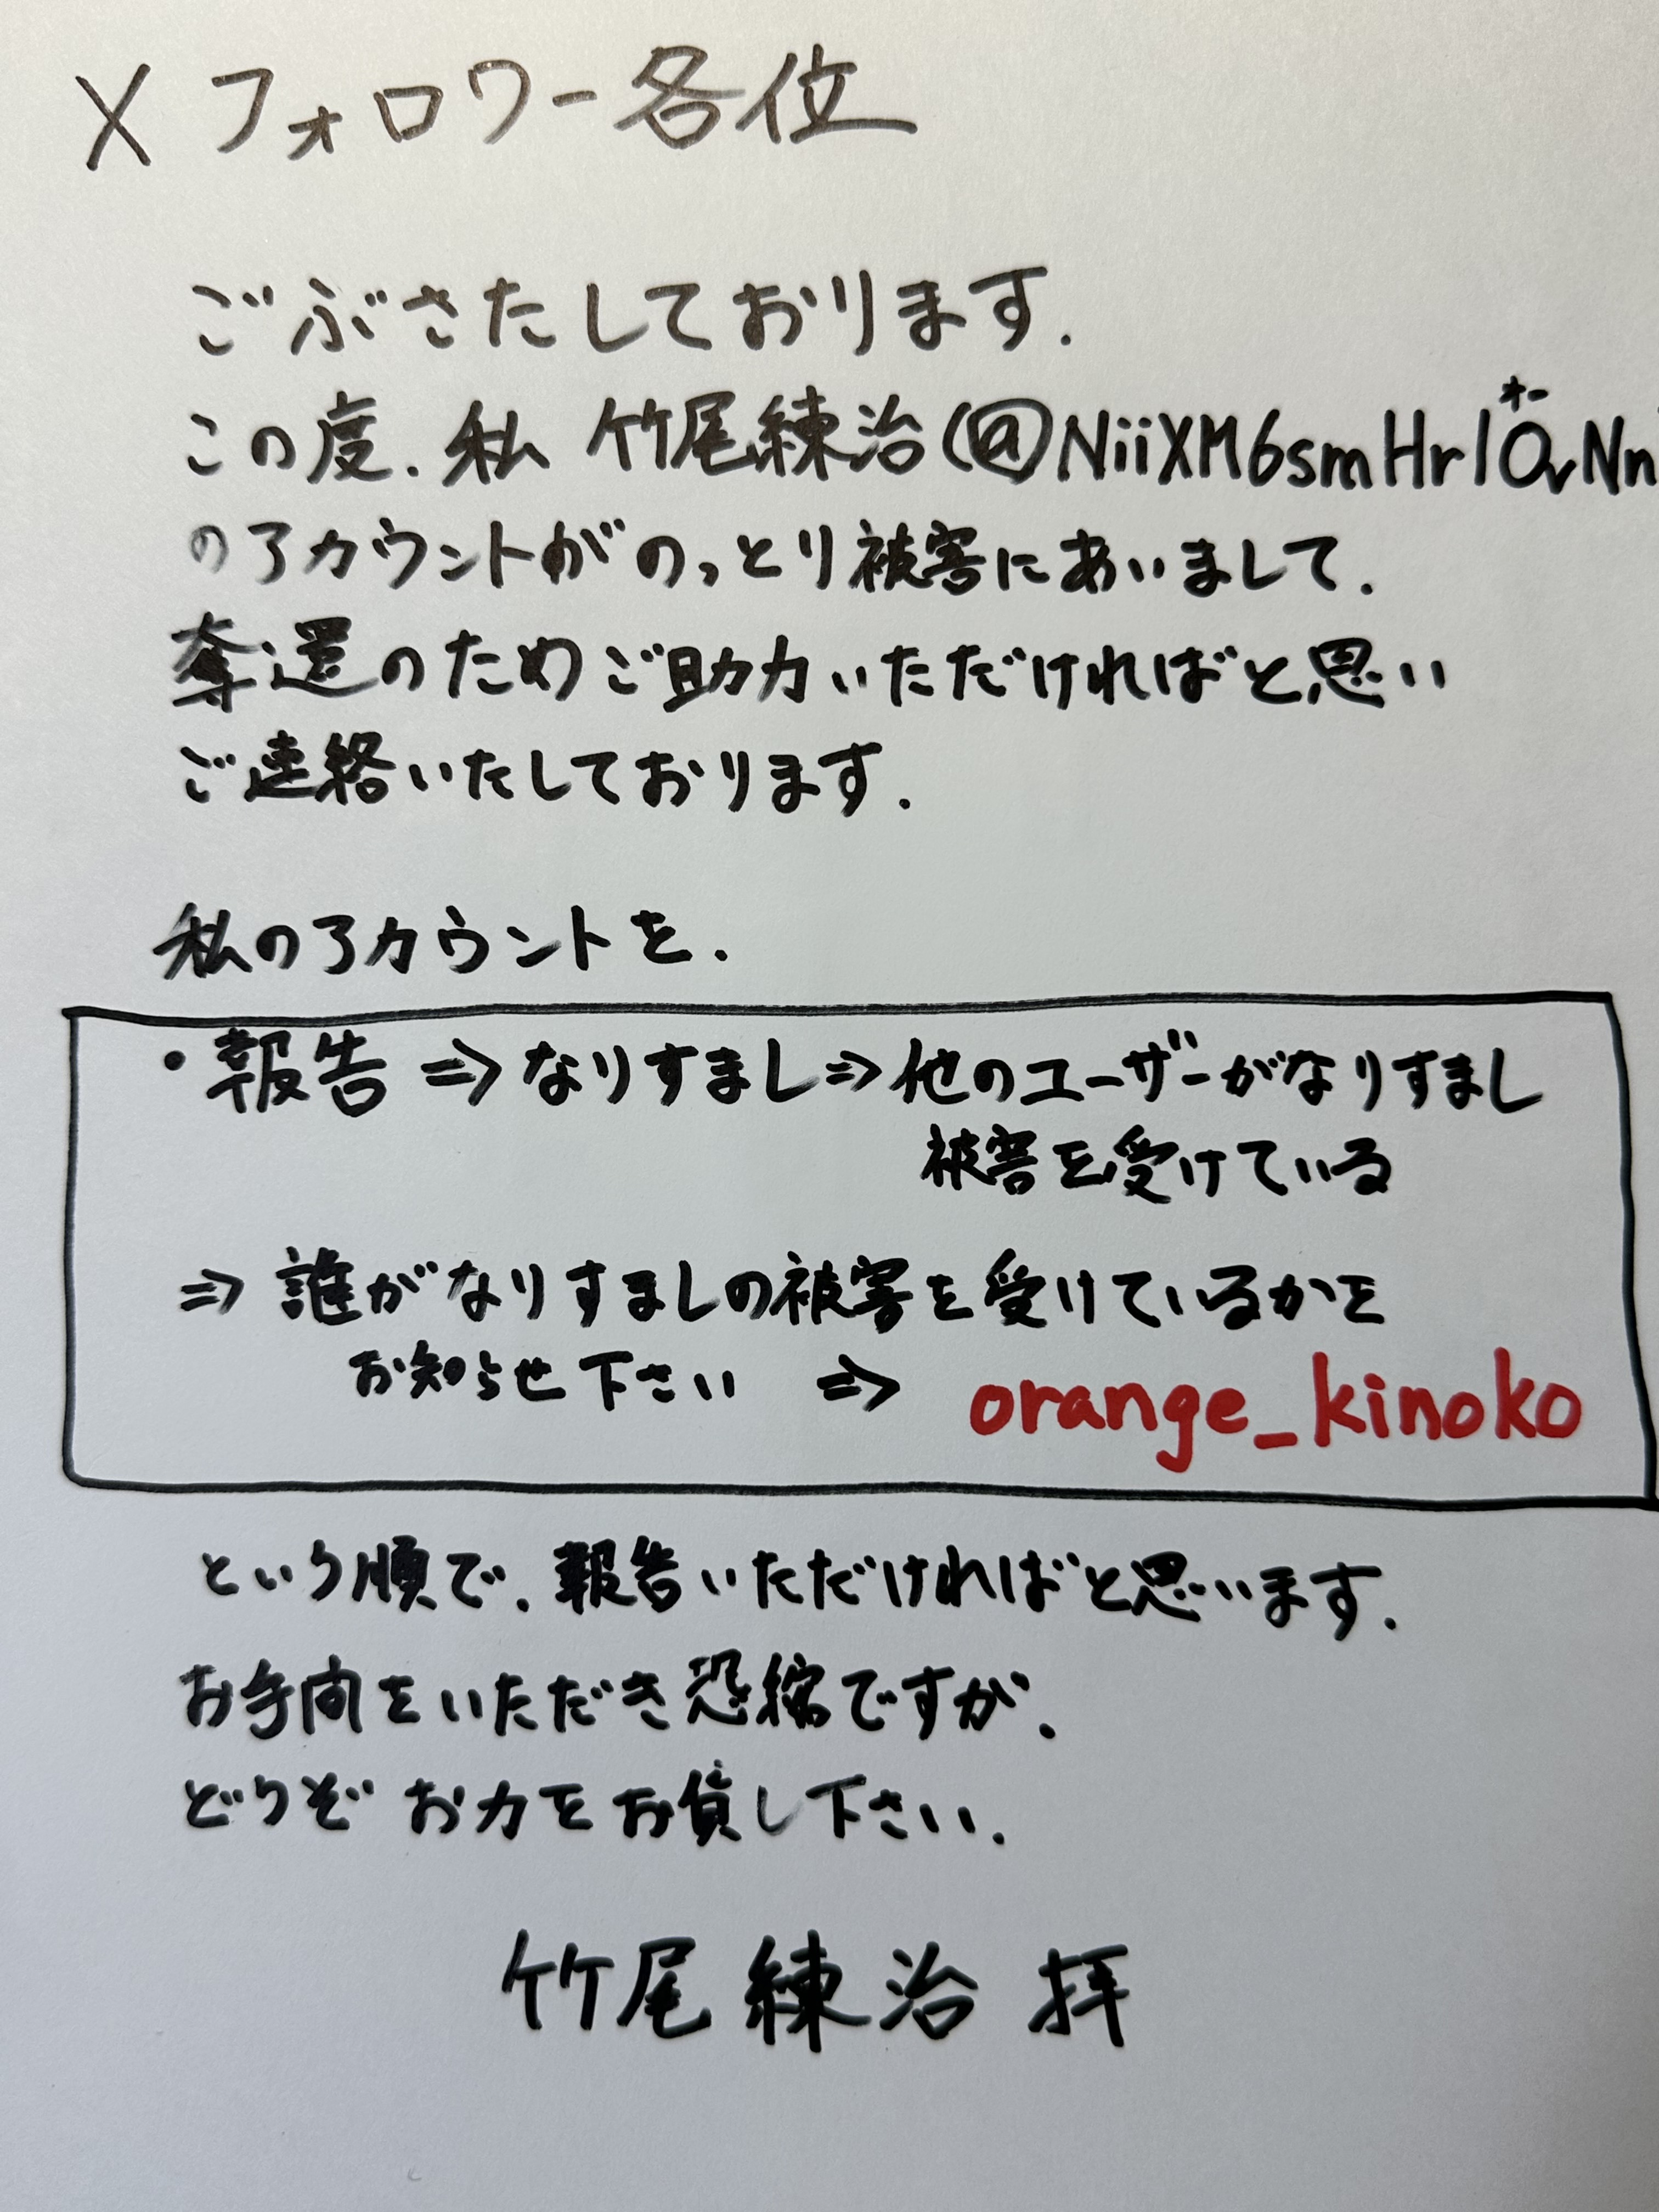 X フォロワー各位
ごぶさたしております.
この度. 私 竹尾練治(@NiiXM6smHrlOvNn
オー
のアカウントがのっとり被害にあいまして.
奪還のためご助力いただければと思い
ご連絡いたしております.
私のアカウントを.
・報告 ⇒ なりすまし ⇒ 他のユーザーがなりすまし
被害を受けている
⇒ 誰がなりすましの被害を受けているかを
お知らせ下さい ⇒ orange_kinoko
という順で. 報告いただければと思います.
お手間をいただき恐縮ですが.
どうぞ お力をお貸し下さい.
竹尾 練治 拝